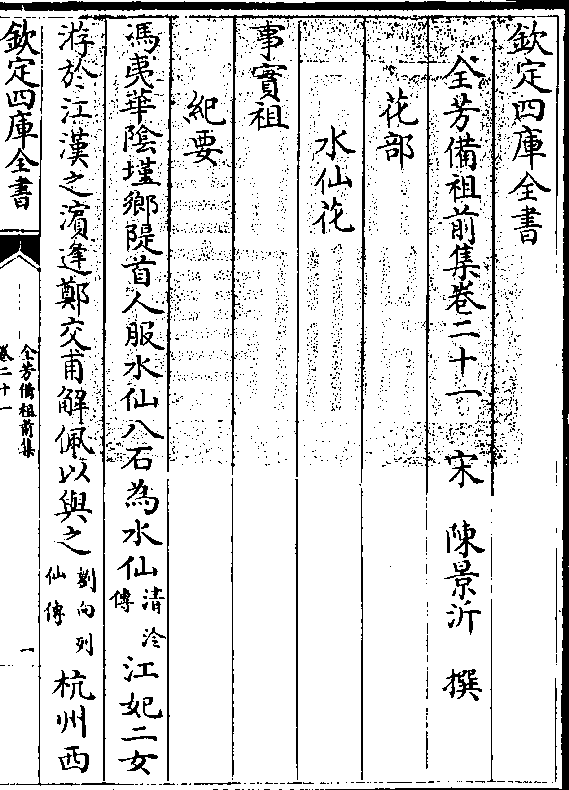 欽定四庫全書
全芳備祖前集卷二十一 宋 陳景沂 撰
花部
水仙花
事實祖
紀要
馮夷華陰堹鄉隄首人服水仙八石為水仙清泠傳江妃二女
游於江漢之濱逢鄭交甫解佩以與之劉向列仙傳杭州西
欽定四庫全書
全芳備祖前集
卷二十一
一